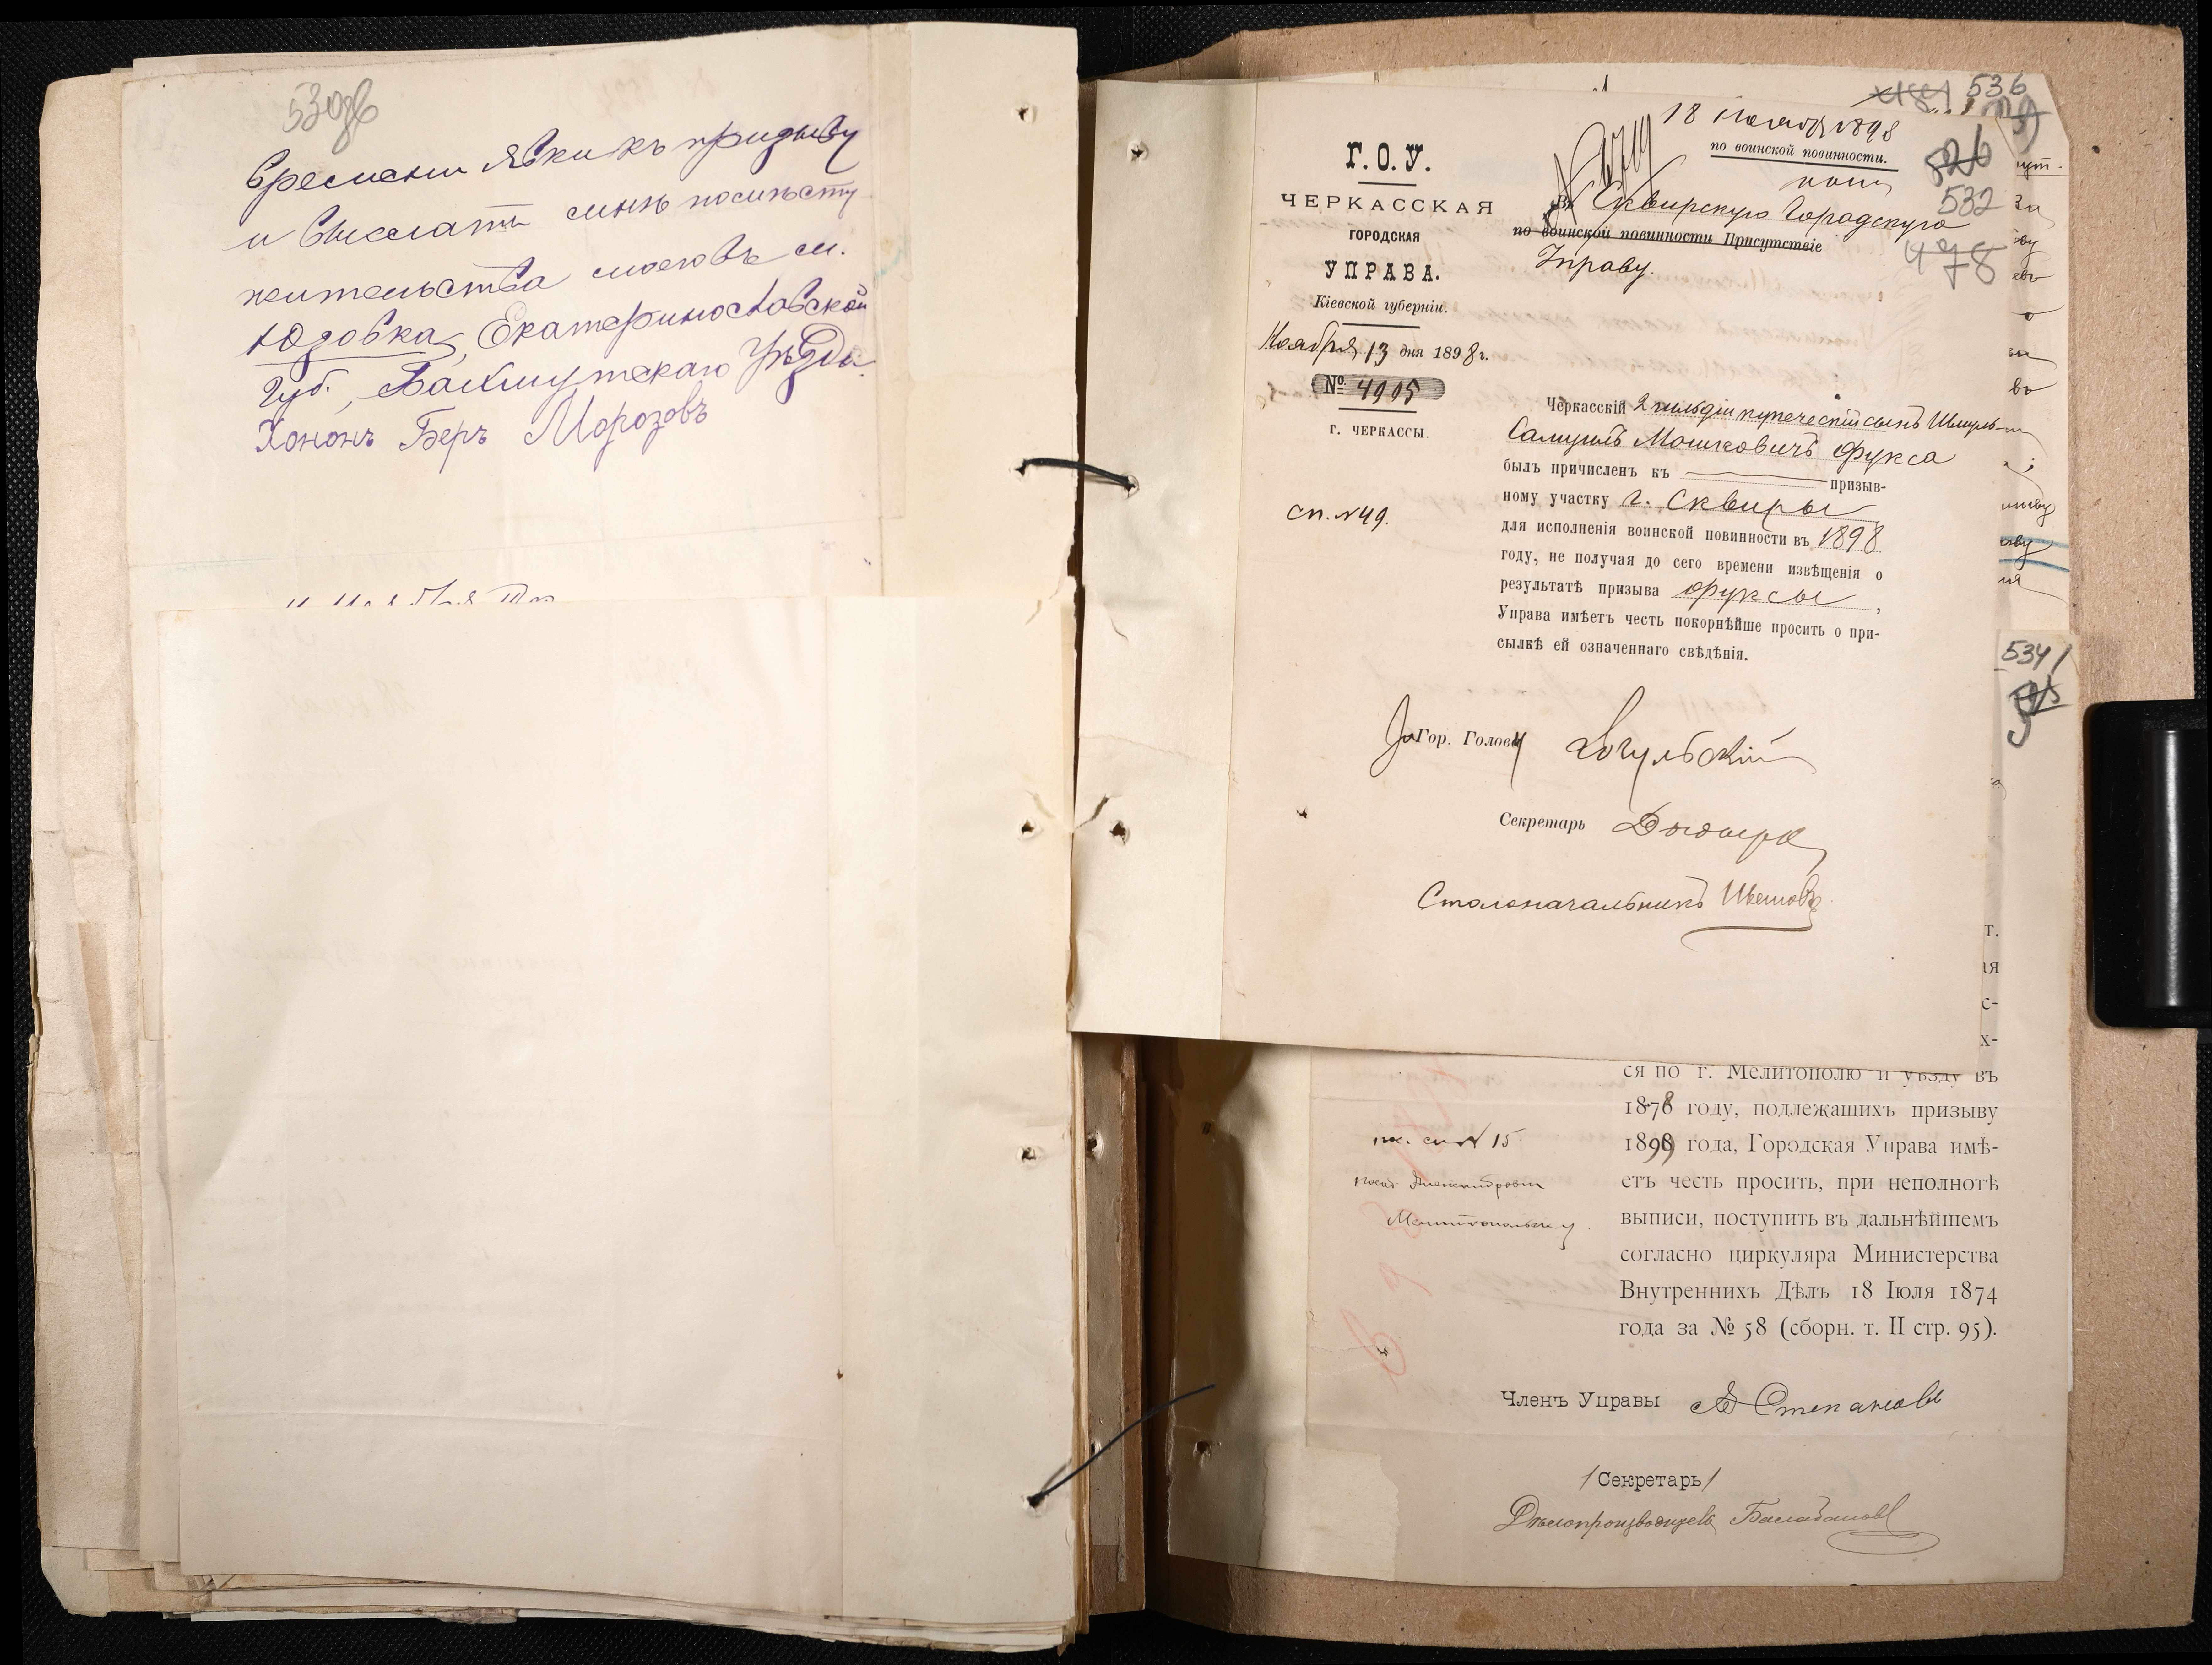 530 об
времени явки къ призыву
и выслать мнѣ по мѣсту
жительства моего въ м.
Юзовка, Екатеринославской
Губ., Бахмутскаго Уѣзда.
Хононъ Беръ Морозовъ
536
18 Ноября 1898
по воинской повинности.
526
532
478
Г.О.У.
ЧЕРКАССКАЯ
ГОРОДСКАЯ
УПРАВА.
Кіевской губерніи.
Ноября 13 дня 1898 г.
№ 4905
г. ЧЕРКАССЫ.
сп. №49.
Въ Сквирскую Городскую
по воинской повинности Присутствіе
Управу.
Черкасскій 2 гильдіи купеческій сынъ Шмуль-
Самуилъ Мошковичъ Фукса
былъ причисленъ къ призыв-
ному участку г. Сквиры
для исполненія воинской повинности въ 1898
году, не получая до сего времени извѣщенія о
результатѣ призыва Фуксы,
Управа имѣетъ честь покорнѣйше просить о при-
сылкѣ ей означеннаго свѣдѣнія.
За Гор. Голову
Секретарь
Столоначальникъ
534
ся по г. Мелитополю и уѣзду въ
1878 году, подлежащихъ призыву
1899 года, Городская Управа имѣ-
етъ честь просить, при неполнотѣ
выписи, поступить въ дальнѣйшемъ
согласно циркуляра Министерства
Внутреннихъ Дѣлъ 18 Іюля 1874
года за № 58 (сборн. т. II стр. 95).
15
Членъ Управы Степановъ
/Секретарь/
Дѣлопроизводитель Балабановъ